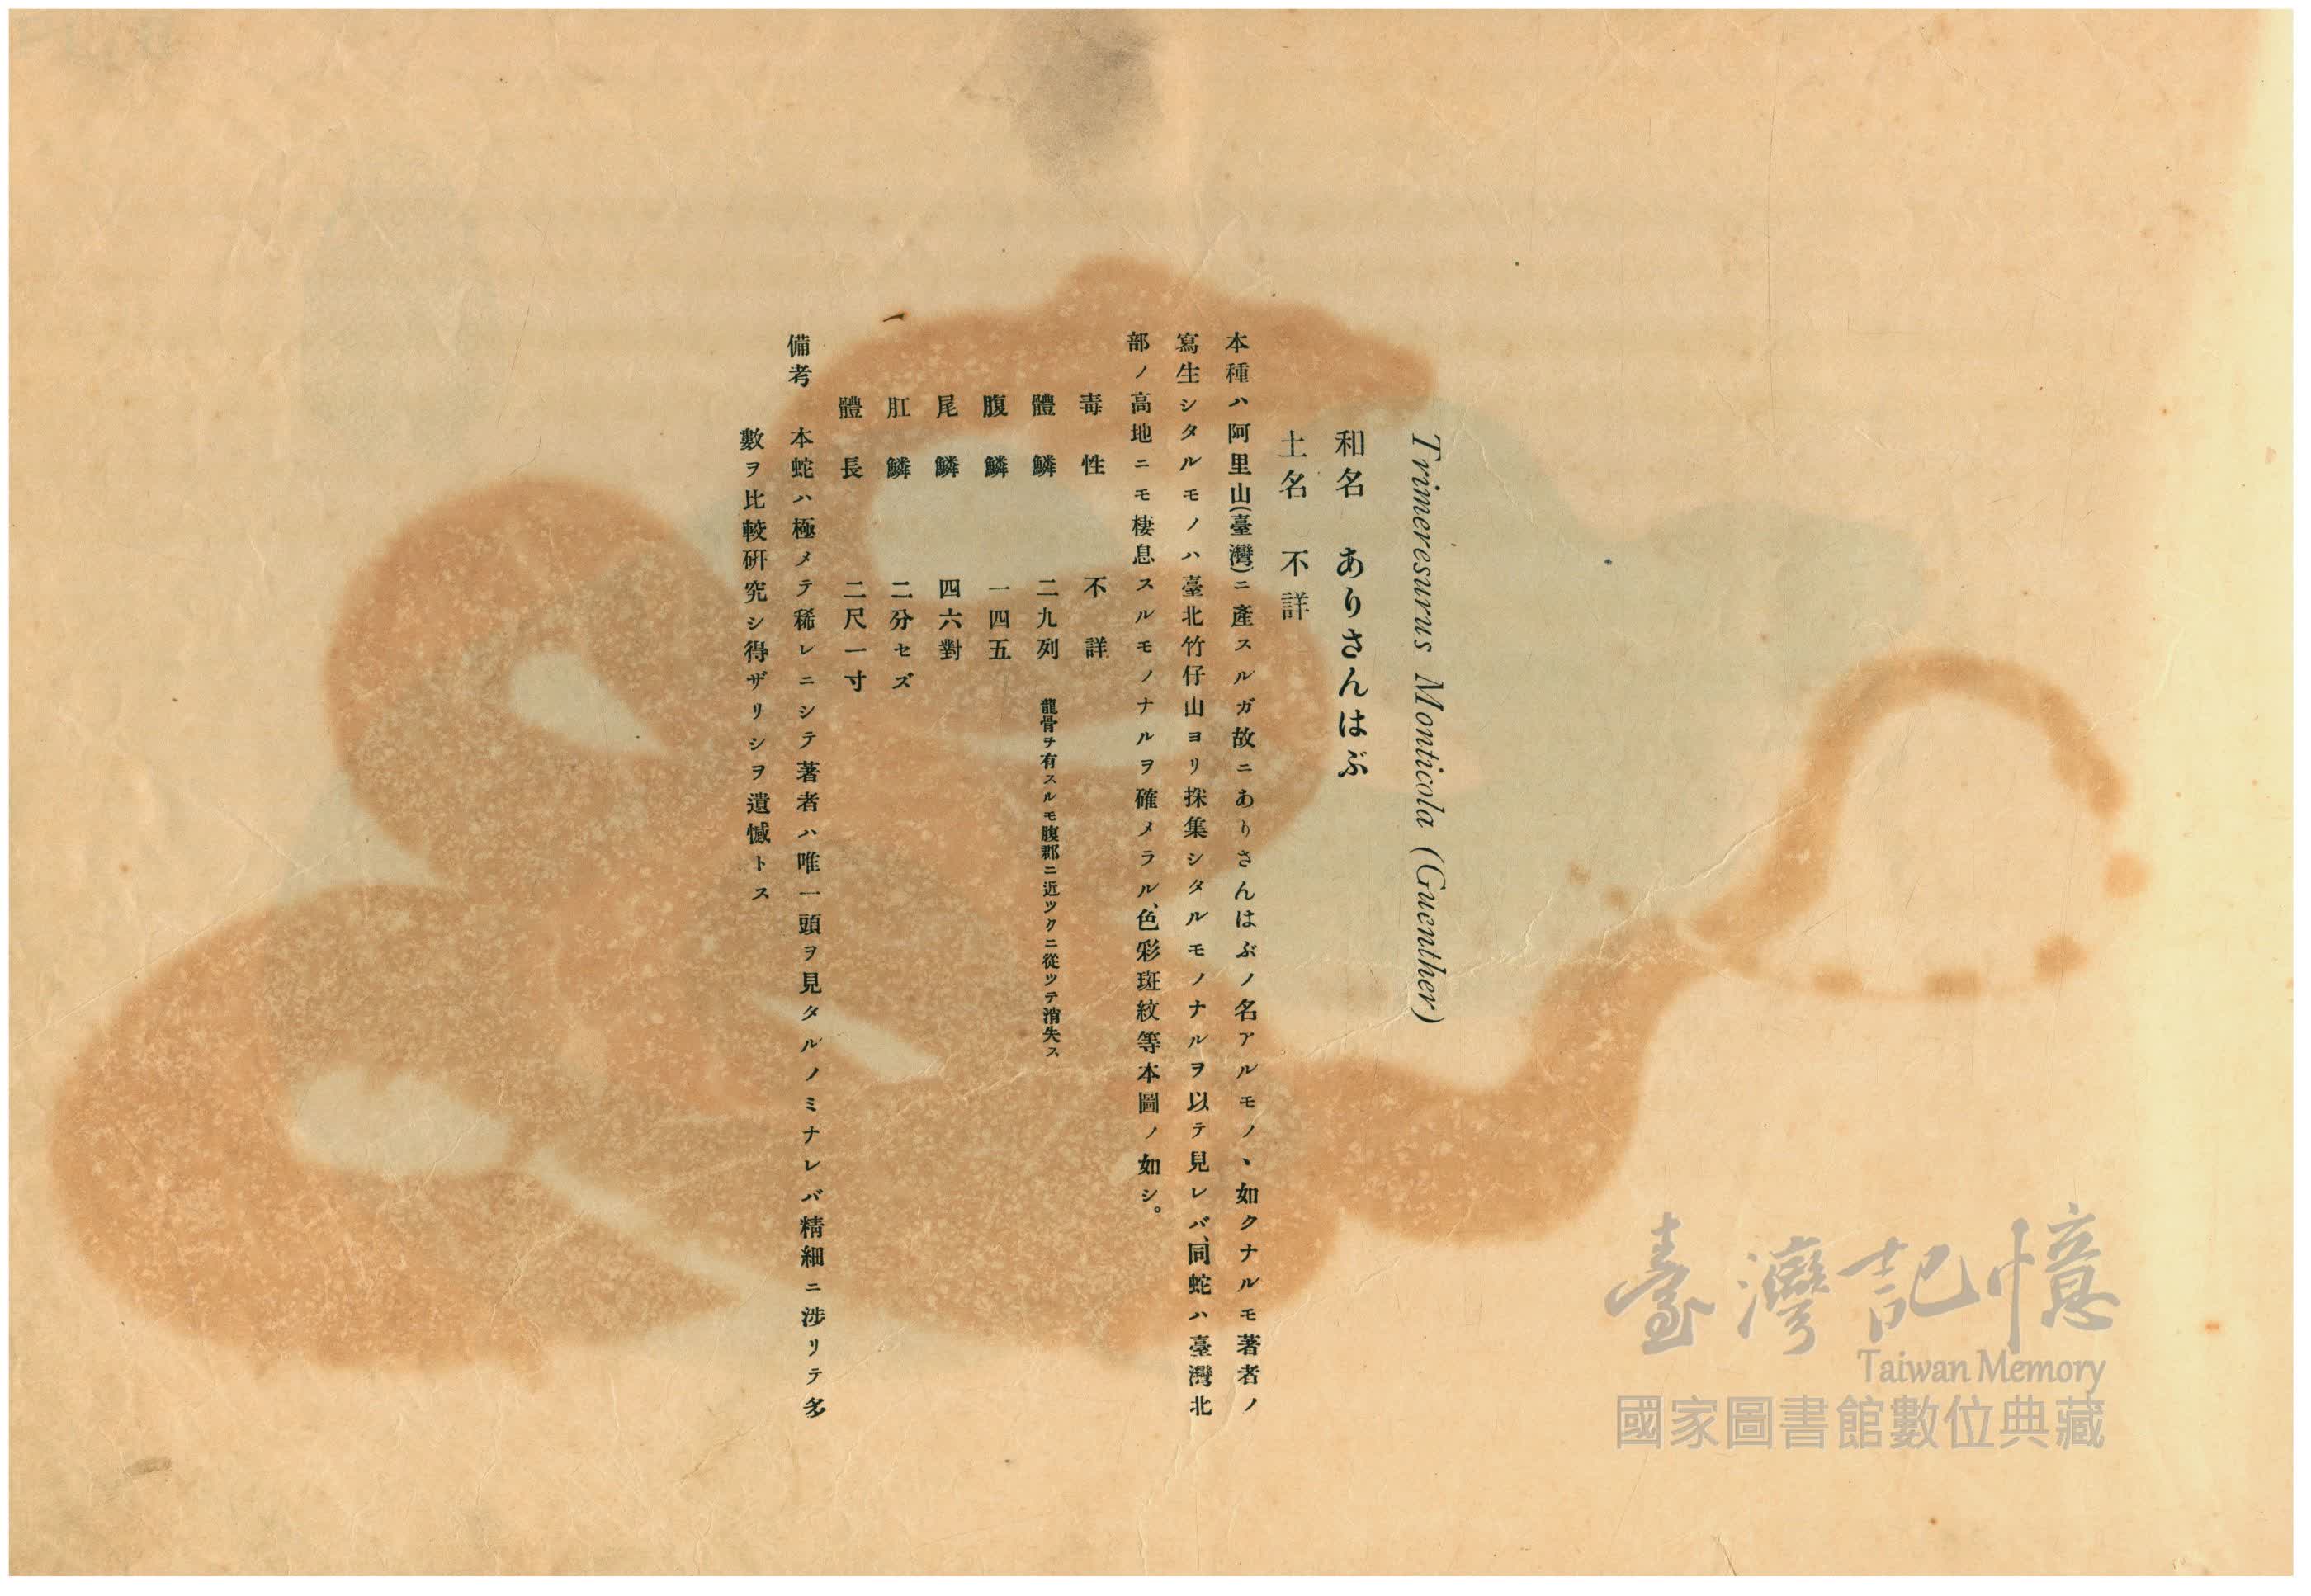 Trimeresurus Monticola (Guenther)
和名 ありさんはぶ
土名 不詳
本種ハ阿里山(臺灣)ニ產スルガ故ニありさんはぶノ名アルモノヽ如クナルモ著者ノ
寫生シタルモノハ臺北竹仔山ヨリ採集シタルモノナルヲ以テ見レバ、同蛇ハ臺灣北
部ノ高地ニモ棲息スルモノナルヲ確メラル、色彩斑紋等本圖ノ如シ。
毒性 不詳
體鱗 二九列 龍骨チ有スルモ腹郡ニ近ツクニ從ツテ消失ス
腹鱗 一四五
尾鱗 四六對
肛鱗 二分セズ
體長 二尺一寸
備考 本蛇ハ極メテ稀レニシテ著者ハ唯一頭ヲ見タルノミナレバ精細ニ涉リテ多
數ヲ比較硏究シ得ザリシヲ遺憾トス
臺灣記憶
Taiwan Memory
國家圖書館數位典藏